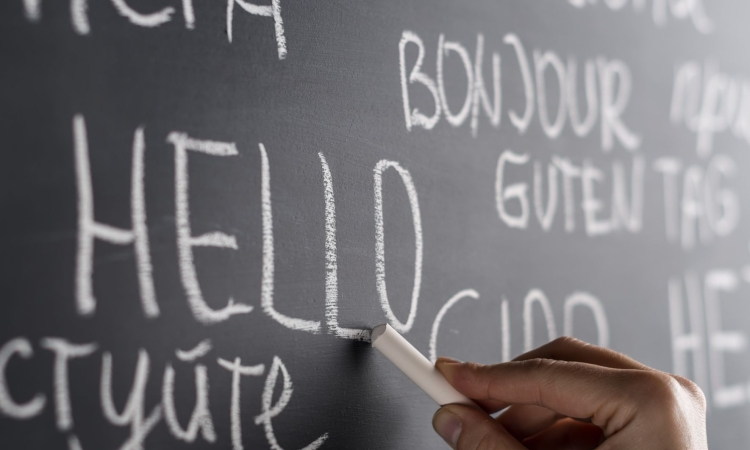 BONJOUR
при
HELLO
GUTEN TAG
CIAO
HE
стуйте